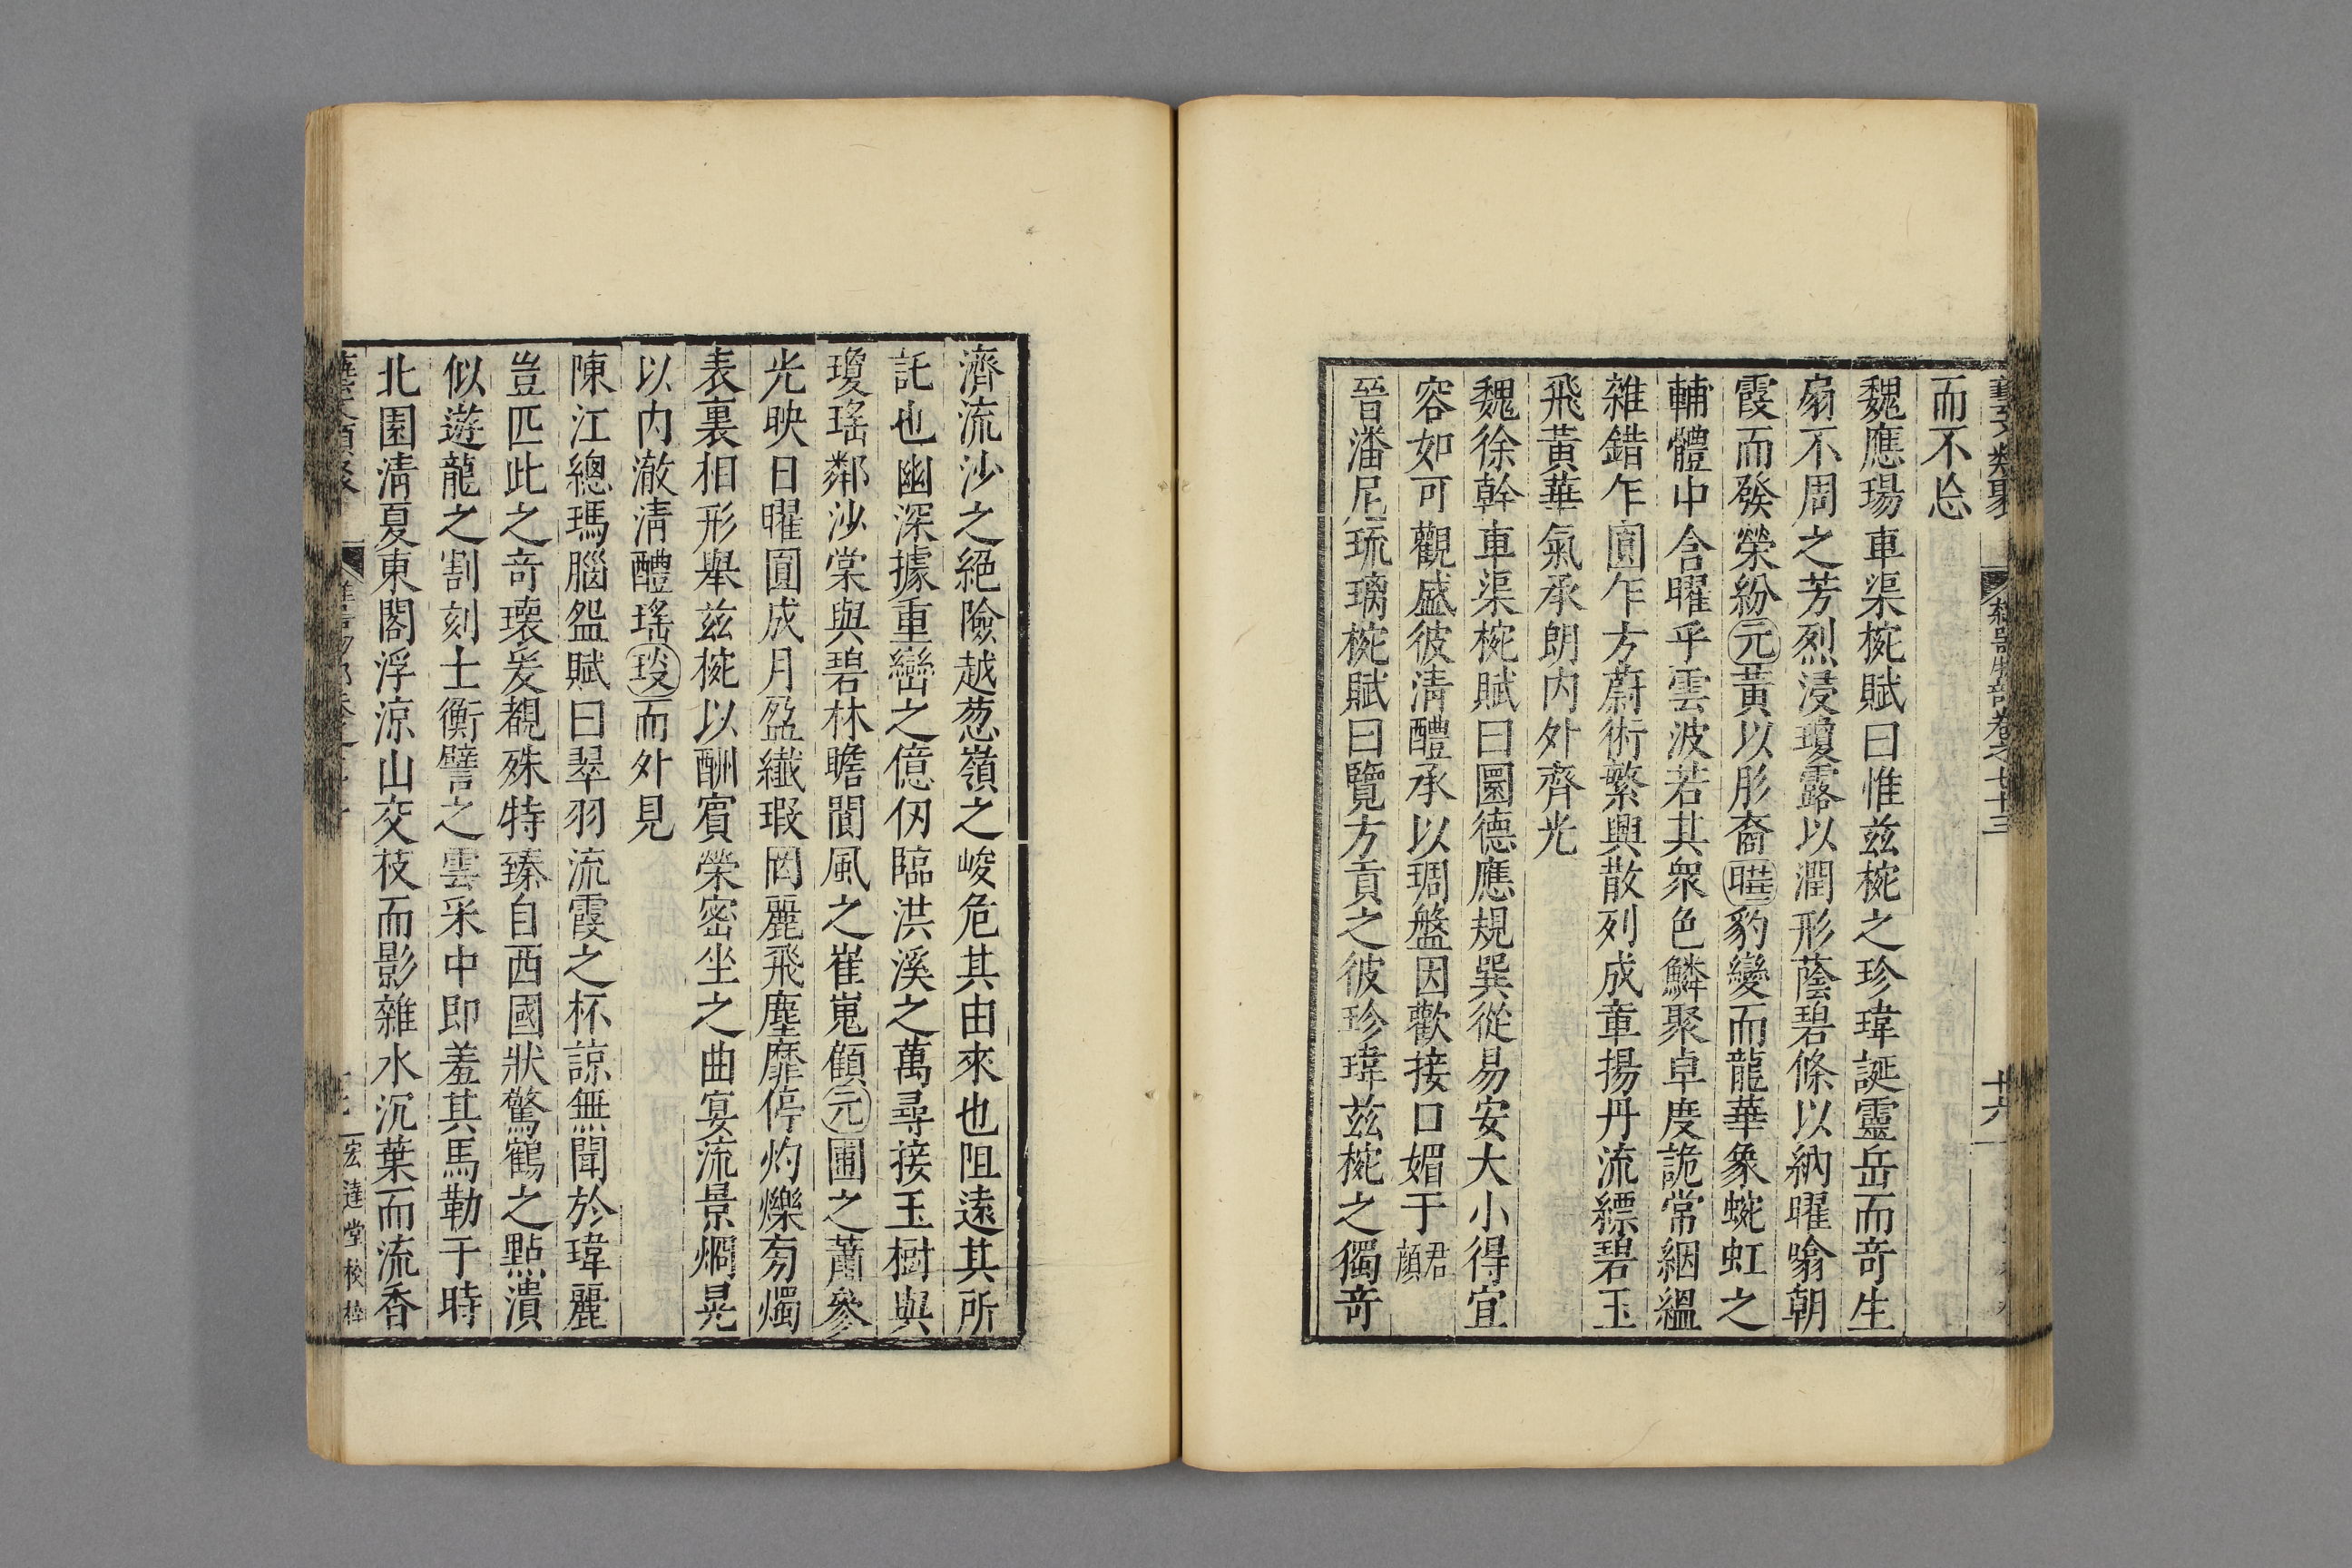 藝文類聚 雜器物部卷之七十三 十六
而不忩
魏應瑒車渠椀賦曰惟兹椀之珍瑋誕靈岳而奇生
扇不周之芳烈浸瓊露以潤形蔭碧條以納曜噏朝
霞而發榮紛元黃以肜裔曄豹變而龍華象蜿虹之
輔體中含曜乎雲波若其衆色鱗聚卓度詭常絪縕
雜錯乍圓乍方蔚術繁興散列成章揚丹流縹碧玉
飛黃華氣承朗内外齊光
魏徐幹車渠椀賦曰圜德應規巽從易安大小得宜
容如可觀盛彼清醴承以琱盤因歡接口媚于君顏
晉潘尼琉璃椀賦曰覽方貢之彼珍瑋兹椀之獨奇
濟流沙之絕險越葱嶺之峻危其由來也阻遠其所
託也幽深據重巒之億仞臨洪溪之萬尋接玉樹與
瓊瑤鄰沙棠與碧林瞻閬風之崔嵬顧元圃之蕭參
光映日曜圓成月盈纖瑕罔麗飛塵靡停灼爍旁燭
表裏相形舉兹椀以酬賓榮密坐之曲宴流景烱晃
以内澈清醴瑤琰而外見
陳江總瑪腦盌賦曰翠羽流霞之杯諒無聞於瑋麗
豈匹此之奇瓌爰覩殊特臻自西國狀驚鶴之點潰
似遊龍之割刻士衡譬之雲采中即羞其馬勒于時
北園清夏東閣浮涼山交枝而影雜水沉葉而流香
藝文類聚 宏達堂校梓